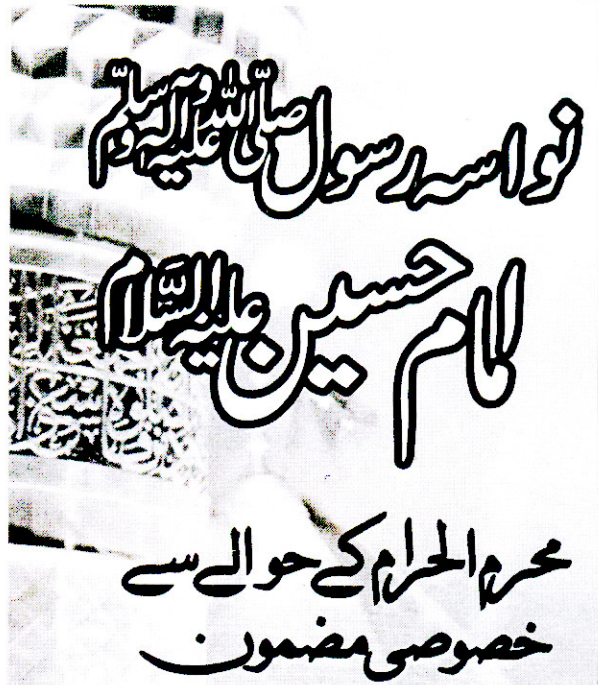 نواسہ رسول صلی اللہ علیہ وآلہ وسلم
امام حسین علیہ السَّلام
محرم الحرام کے حوالے سے
خصوصی مضمون